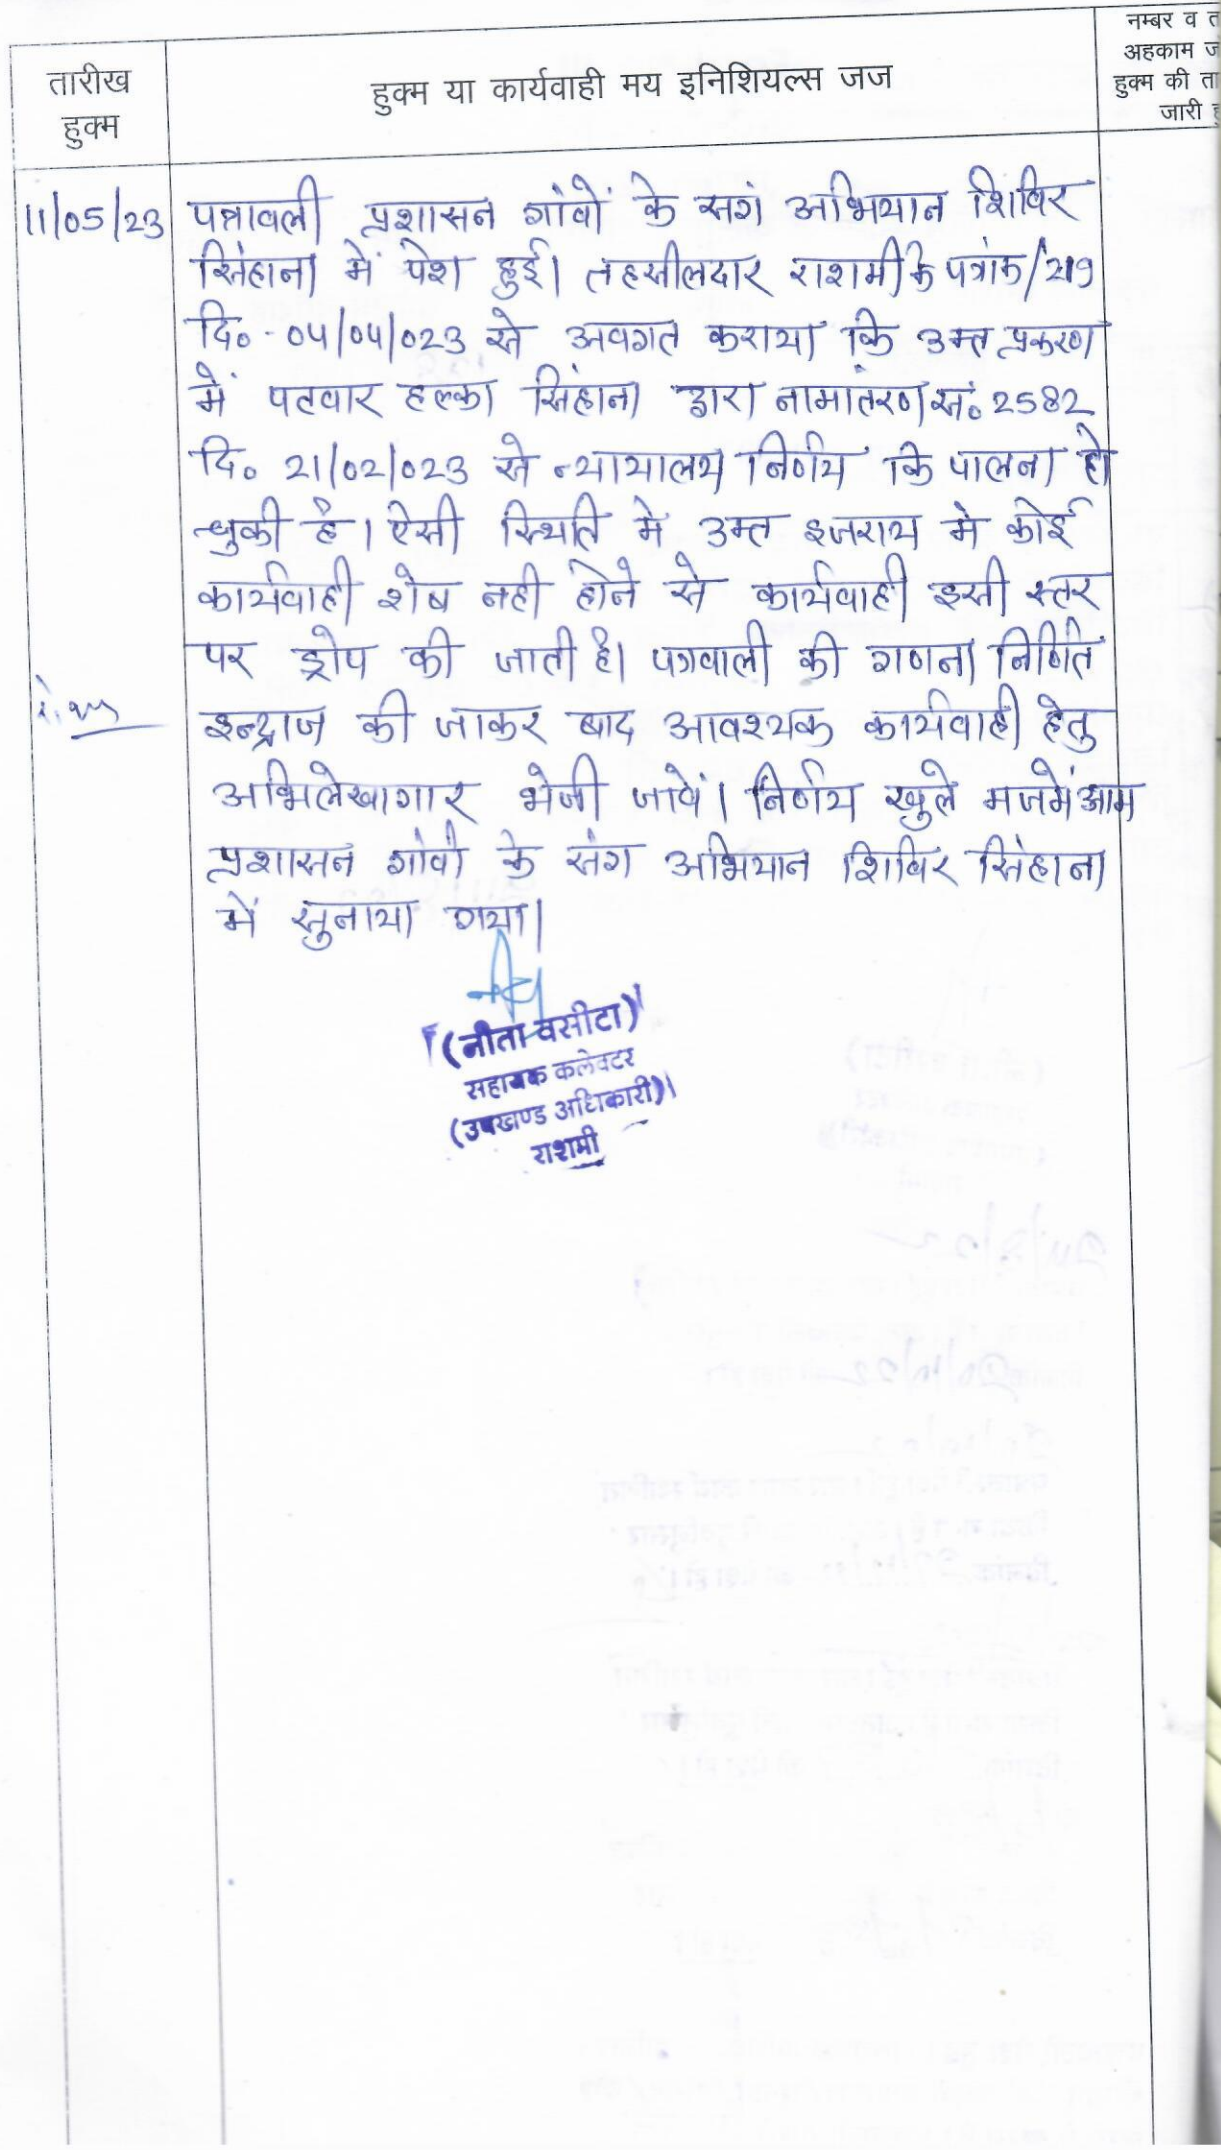 तारीख
हुक्म
हुक्म या कार्यवाही मय इनिशियल्स जज
नम्बर व त
अहकाम ज
हुक्म की ता
जारी ह
11/05/23 पत्रावली प्रशासन गांवों के सगं अभियान शिविर
सिंहाना में पेश हुई। तहसीलदार राशमी के पत्रांक/219
दि॰ - 04/04/023 से अवगत कराया कि उक्त प्रकरण
में पटवार हल्का सिंहाना द्वारा नामांतरण सं॰ 2582
दि॰ 21/02/023 से न्यायालय निर्णय कि पालना हो
चुकी है। ऐसी स्थिति मे उक्त इजराय मे कोई
कार्यवाही शेष नही होने से कार्यवाही इसी स्तर
पर ड्रोप की जाती है। पत्रवाली की गणना निर्णित
इन्द्राज की जाकर बाद आवश्यक कार्यवाही हेतु
अभिलेखागार भेजी जावें। निर्णय खुले मजमेंआम
प्रशासन गांवों के संग अभियान शिविर सिंहाना
में सुनाया गया।
(नीता वसीटा)
सहायक कलेक्टर
(उपखण्ड अधिकारी)
राशमी